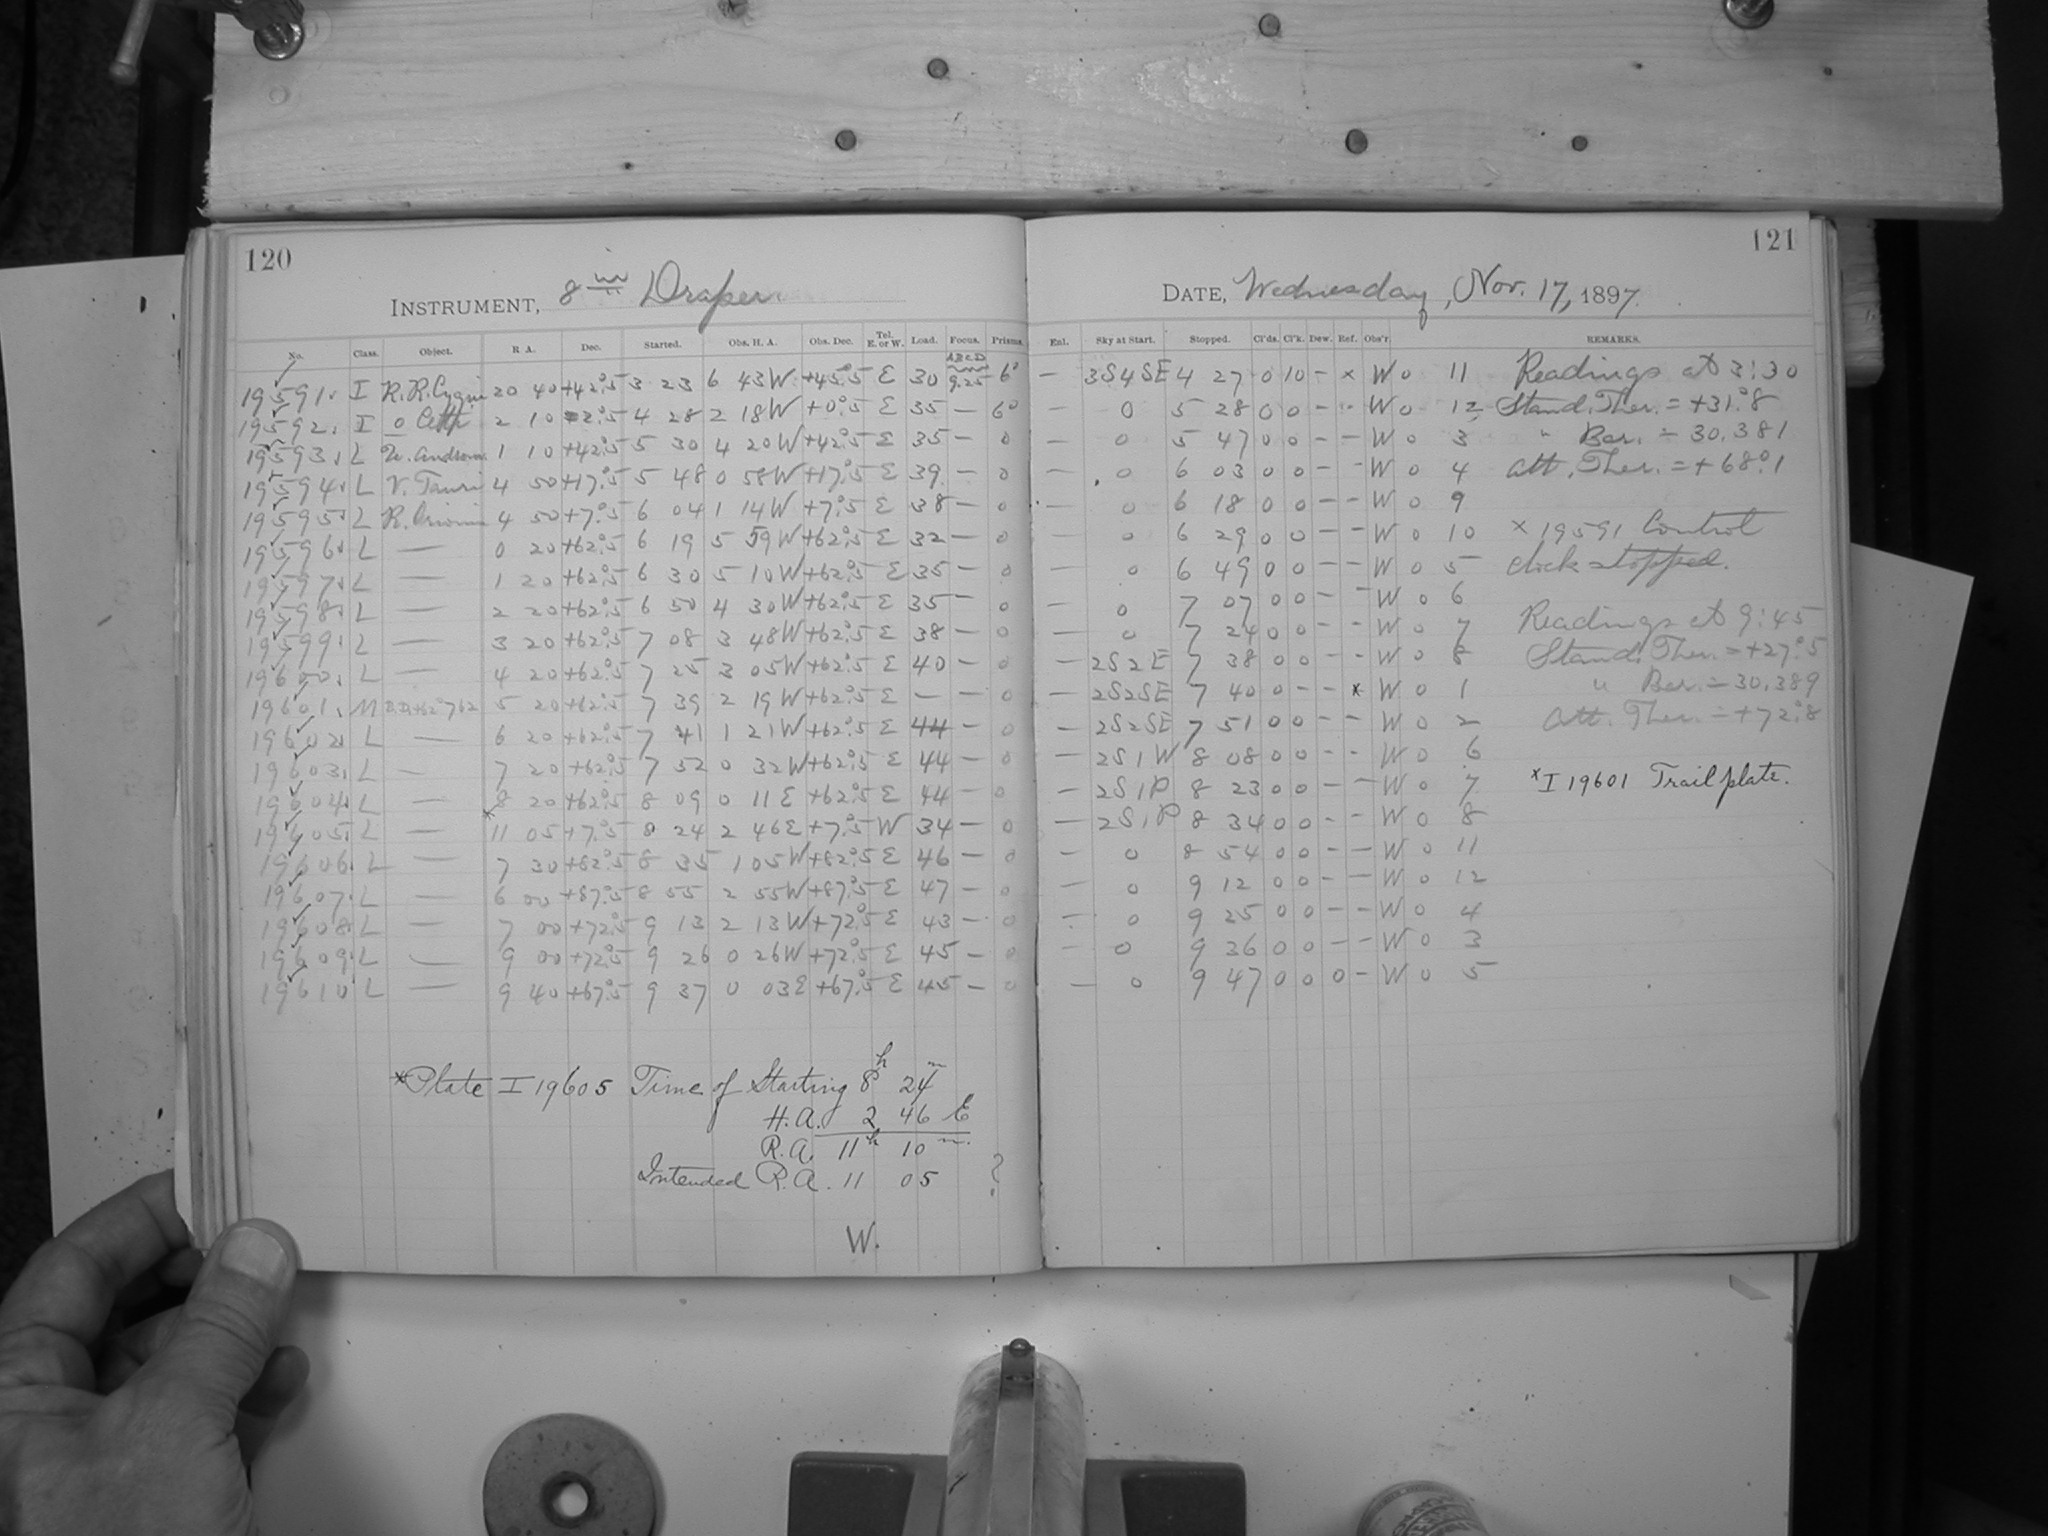 120
INSTRUMENT, 8 in Draper.
No. Class. Object. R A. Dec. Started. Obs. H. A. Obs. Dec. Tel. E. or W. Load. Focus. Prisms.
A B C D
19591. I R. R. Cygni 20 40 +42°.5 3 23 6 43 W +45°.5 E 30 9.25 6°
19592. I o Ceti 2 10 -2°.5 4 28 2 18 W +0°.5 E 35 — 6°
19593. L 1 10 +42°.5 5 30 4 20 W +42°.5 E 35 — 0
19594. L V. Tauri 4 50 +17°.5 5 48 0 58 W +17°.5 E 39 — 0
19595. L R. Orionis 4 50 +7°.5 6 04 1 14 W +7°.5 E 38 — 0
19596. L — 0 20 +62°.5 6 19 5 59 W +62°.5 E 32 — 0
19597. L — 1 20 +62°.5 6 30 5 10 W +62°.5 E 35 — 0
19598. L — 2 20 +62°.5 6 50 4 30 W +62°.5 E 35 — 0
19599. L — 3 20 +62°.5 7 08 3 48 W +62°.5 E 38 — 0
19600. L — 4 20 +62°.5 7 25 3 05 W +62°.5 E 40 — 0
19601. M B.D.+62°762 5 20 +62°.5 7 39 2 19 W +62°.5 E — — 0
19602. L — 6 20 +62°.5 7 41 1 21 W +62°.5 E 44 — 0
19603. L — 7 20 +62°.5 7 52 0 32 W +62°.5 E 44 — 0
19604. L — 8 20 +62°.5 8 09 0 11 E +62°.5 E 44 — 0
19605. L — * 11 05 +7°.5 8 24 2 46 E +7°.5 W 34 — 0
19606. L — 7 30 +82°.5 8 35 1 05 W +82°.5 E 46 — 0
19607. L — 6 00 +87°.5 8 55 2 55 W +87°.5 E 47 — 0
19608. L — 7 00 +72°.5 9 13 2 13 W +72°.5 E 43 — 0
19609. L — 9 00 +72°.5 9 26 0 26 W +72°.5 E 45 — 0
19610. L — 9 40 +67°.5 9 37 0 03 E +67°.5 E 45 — 0
*Plate I 19605 Time of Starting 8h 24m
H.A. 2 46 E
R.A. 11h 10m.
Intended R.A. 11 05 ?
W.
121
DATE, Wednesday, Nov. 17, 1897.
Enl. Sky at Start. Stopped. Cl'ds. Cl'k. Dew. Ref. Obs'r. REMARKS.
— 3S4SE 4 27 0 10 - x W 0 11 Readings at 3:30
— 0 5 28 0 0 - - W 0 12 Stand. Ther. = +31°.8
— 0 5 47 0 0 - - W 0 3 " Bar. = 30.381
— 0 6 03 0 0 - - W 0 4 Att. Ther. = +68°.1
— 0 6 18 0 0 - - W 0 9
— 0 6 29 0 0 - - W 0 10 x 19591 Control
— 0 6 49 0 0 - - W 0 5 clock stopped.
— 0 7 07 0 0 - - W 0 6
— 0 7 24 0 0 - - W 0 7 Readings at 9:45
— 2S2E 7 38 0 0 - - W 0 8 Stand. Ther. = +27°.5
— 2S2SE 7 40 0 - - * W 0 1 " Bar. = 30.389
— 2S2SE 7 51 0 0 - - W 0 2 Att. Ther. = +72°.8
— 2S1W 8 08 0 0 - - W 0 6
— 2S1P 8 23 0 0 - - W 0 7 *I 19601 Trail plate.
— 2S1P 8 34 0 0 - - W 0 8
— 0 8 54 0 0 - - W 0 11
— 0 9 12 0 0 - - W 0 12
— 0 9 25 0 0 - - W 0 4
— 0 9 36 0 0 - - W 0 3
— 0 9 47 0 0 0 - W 0 5